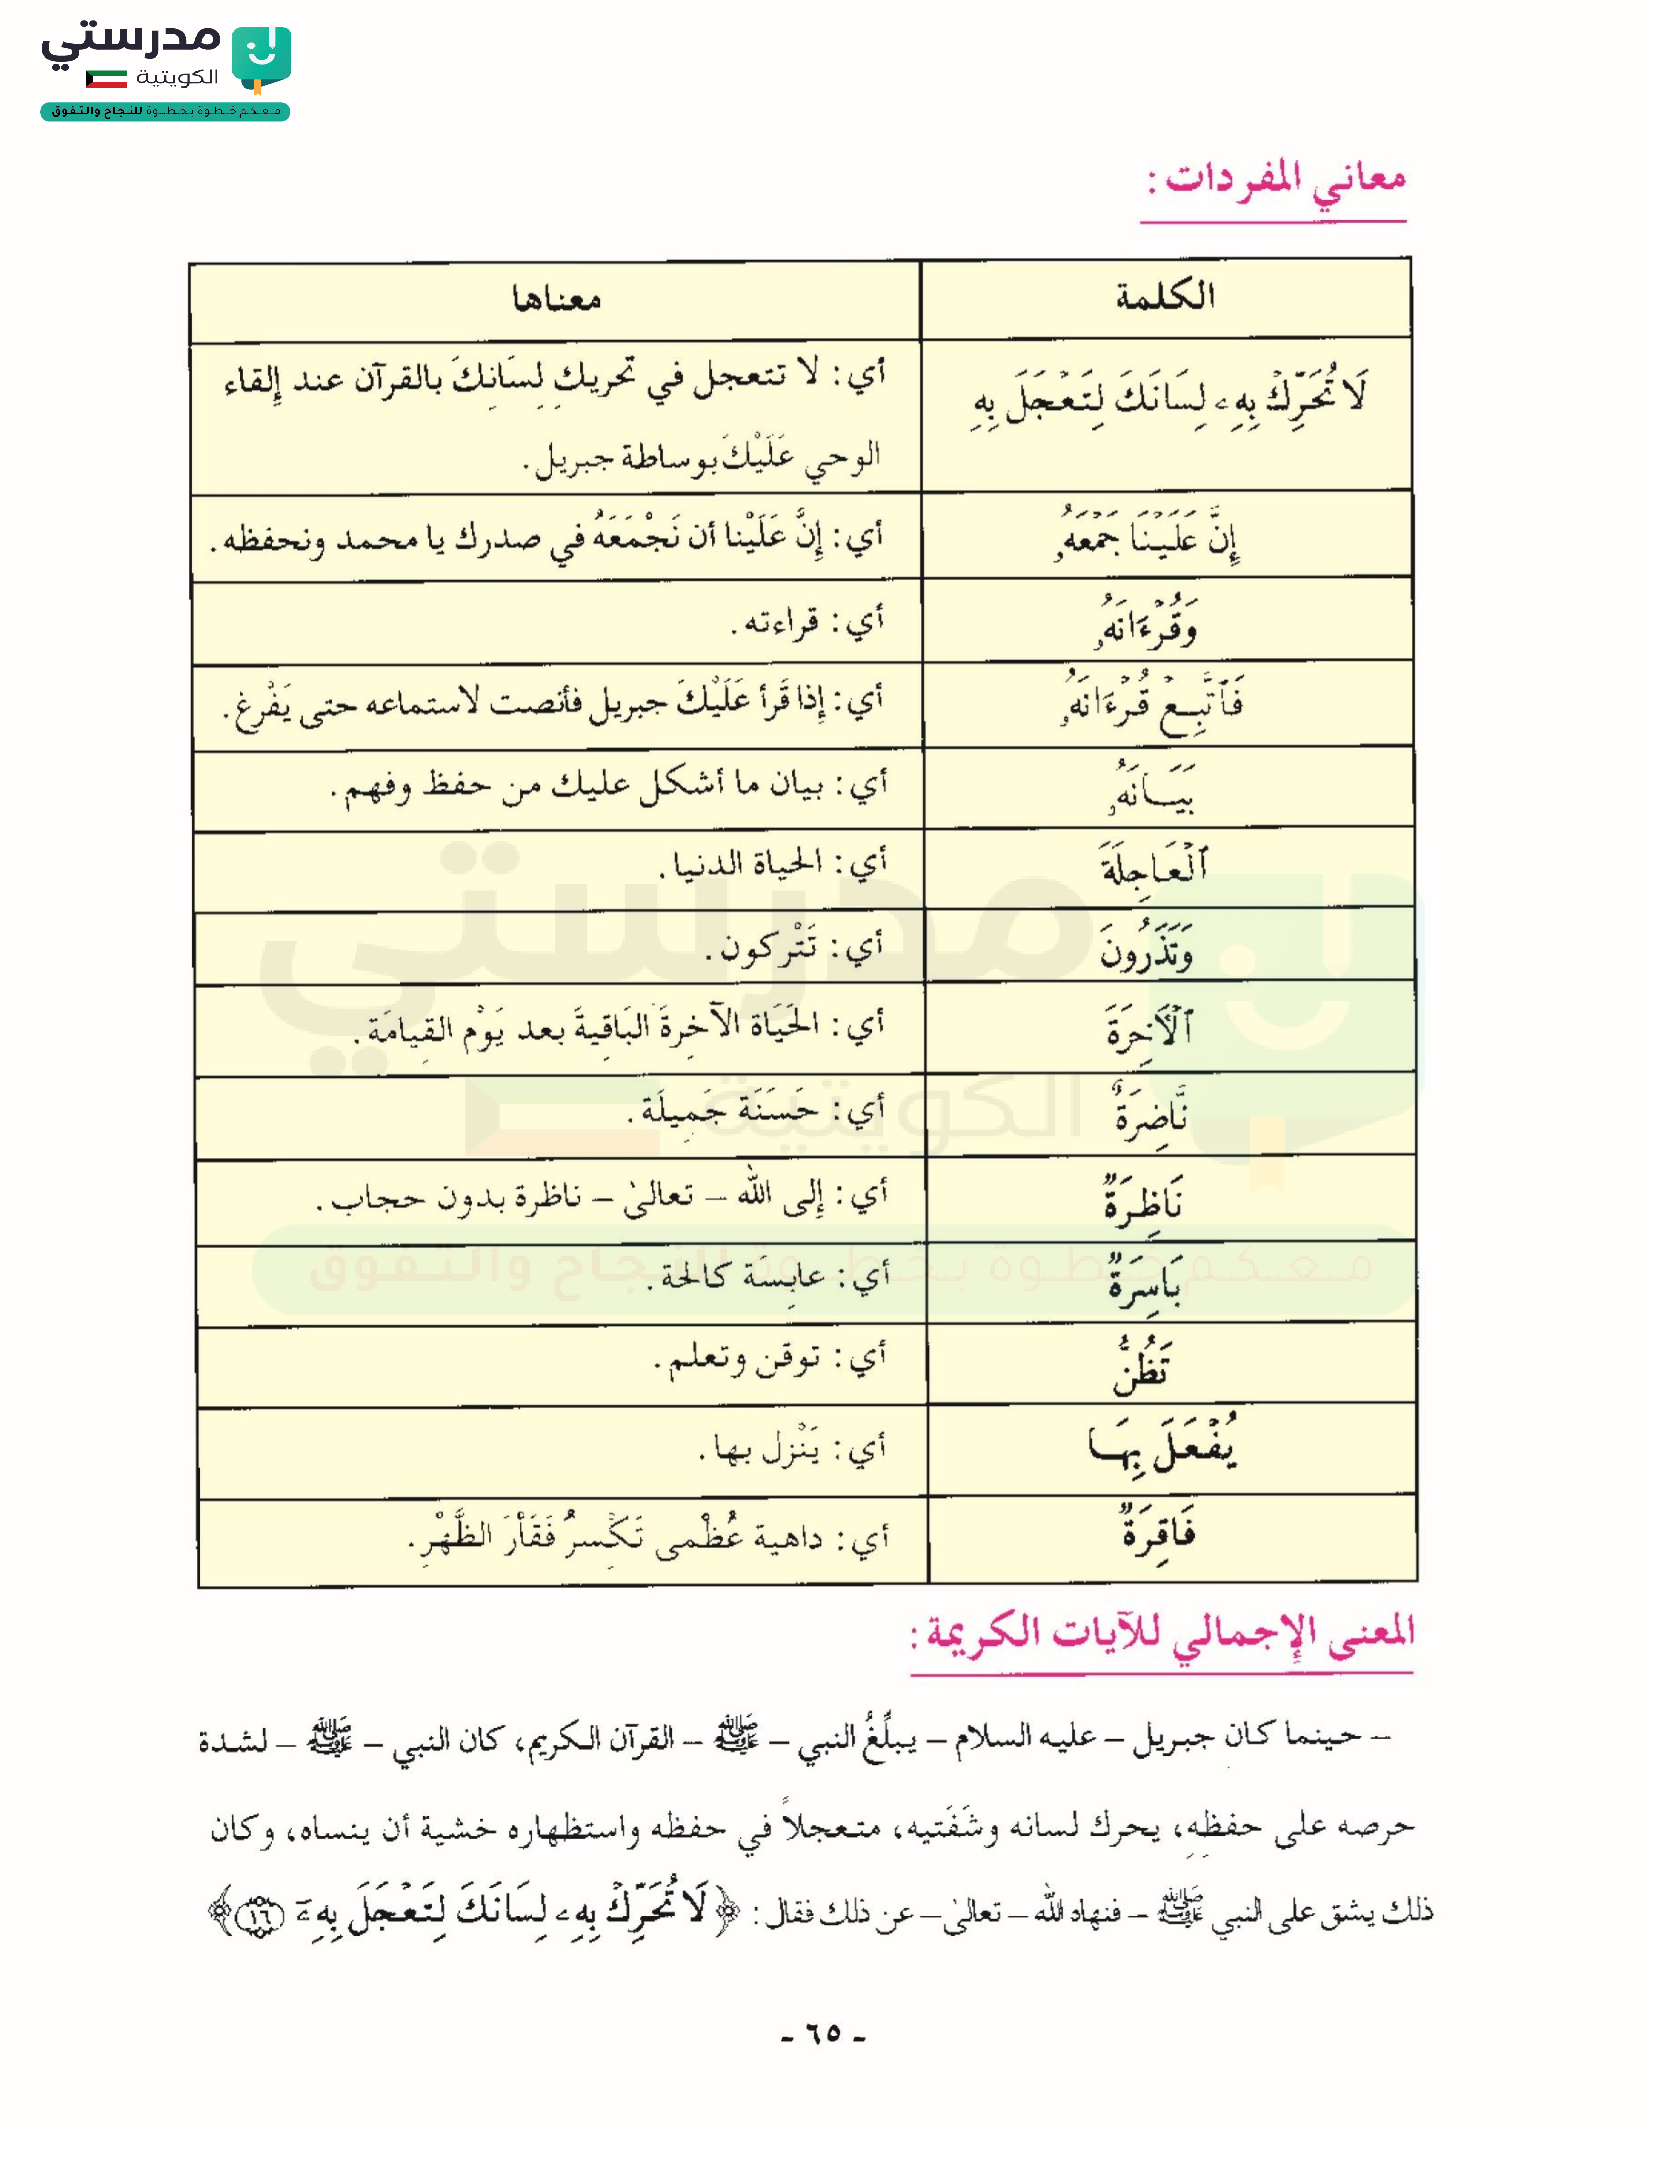 مدرستي
الكويتية
معكم خطوة بخطوة للنجاح والتفوق
معاني المفردات :
الكلمة معناها
لَا تُحَرِّكْ بِهِۦ لِسَانَكَ لِتَعْجَلَ بِهِ أي: لا تتعجل في تحريكِ لِسَانِكَ بالقرآن عند إِلقاء
الوحي عَلَيْكَ بوساطة جبريل.
إِنَّ عَلَيْنَا جَمْعَهُۥ أي: إِنَّ عَلَيْنا أن نَجْمَعَهُ في صدرك يا محمد ونحفظه.
وَقُرْءَانَهُۥ أي: قراءته.
فَٱتَّبِعْ قُرْءَانَهُۥ أي: إِذا قَرأ عَلَيْكَ جبريل فأنصت لاستماعه حتى يَفْرغ.
بَيَانَهُۥ أي: بيان ما أشكل عليك من حفظ وفهم.
ٱلْعَاجِلَةَ أي: الحياة الدنيا.
وَتَذَرُونَ أي: تَتْركون.
ٱلْآخِرَةَ أي: الحَيَاة الآخرِةَ البَاقِيةَ بعد يَوْم القِيامَة.
نَّاضِرَةٌ أي: حَسَنَة جَمِيلَة.
نَاظِرَةٌ أي: إِلى الله – تعالىٰ – ناظرة بدون حجاب.
بَاسِرَةٌ أي: عابِسَة كالحة.
تَظُنُّ أي: توقن وتعلم.
يُفْعَلَ بِهَا أي: يَنْزل بها.
فَاقِرَةٌ أي: داهية عُظْمى تَكْسِرُ فَقَاْرَ الظَّهْرِ.
المعنى الإِجمالي للآيات الكريمة :
– حينما كان جبريل – عليه السلام – يبلِّغُ النبي – ﷺ – القرآن الكريم، كان النبي – ﷺ – لشدة
حرصه على حفظِهِ، يحرك لسانه وشَفَتيه، متعجلاً في حفظه واستظهاره خشية أن ينساه، وكان
ذلك يشق على النبي ﷺ – فنهاه الله – تعالىٰ – عن ذلك فقال: ﴿لَا تُحَرِّكْ بِهِۦ لِسَانَكَ لِتَعْجَلَ بِهِۦٓ ١٦﴾
- ٦٥ -